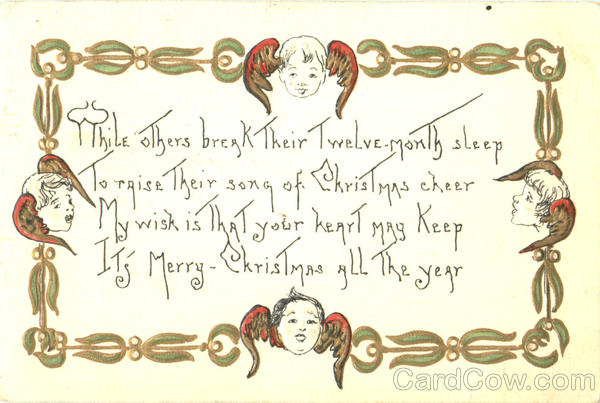 While others break their twelve-month sleep
To raise their song of Christmas cheer
My wish is that your heart may keep
It's Merry-Christmas all the year
CardCow.com